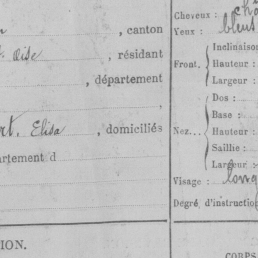 , canton
Oise , résidant
, département
Elisa , domiciliés
partement d
ION.
Cheveux : châ
Yeux : bleus
Front,
Inclinaison
Hauteur :
Largeur :
Nez...
Dos :
Base :
Hauteur :
Saillie :
Largeur :
Visage : long
Degré d'instruction
CORPS